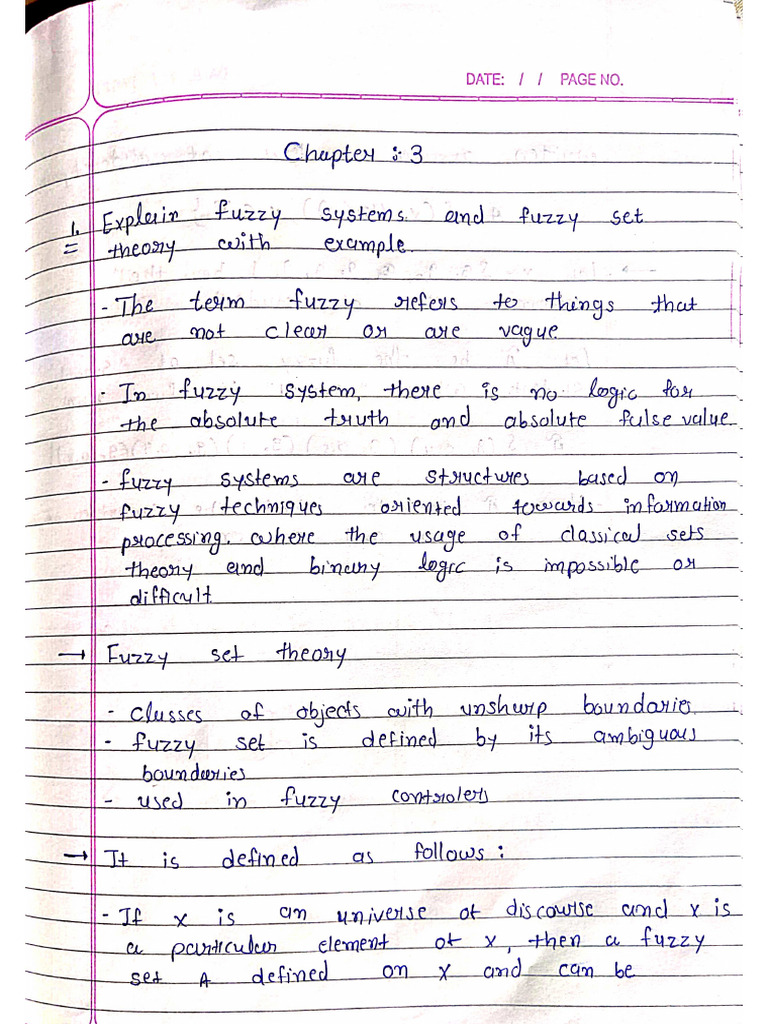 DATE: / / PAGE NO.
Chapter : 3
1. Explain fuzzy systems and fuzzy set
theory with example.
- The term fuzzy refers to things that
are not clear or are vague.
- In fuzzy system, there is no logic for
the absolute truth and absolute fulse value.
- fuzzy systems are structures based on
fuzzy techniques oriented towards information
processing. where the usage of classical sets
theory and binary logic is impossible or
difficult.
→ Fuzzy set theory
- classes of objects with unsharp boundaries.
- fuzzy set is defined by its ambiguous
boundaries
- used in fuzzy controlers
→ It is defined as follows :
- If x is an universe of discourse and x is
a particular element of x, then a fuzzy
set A defined on x and can be